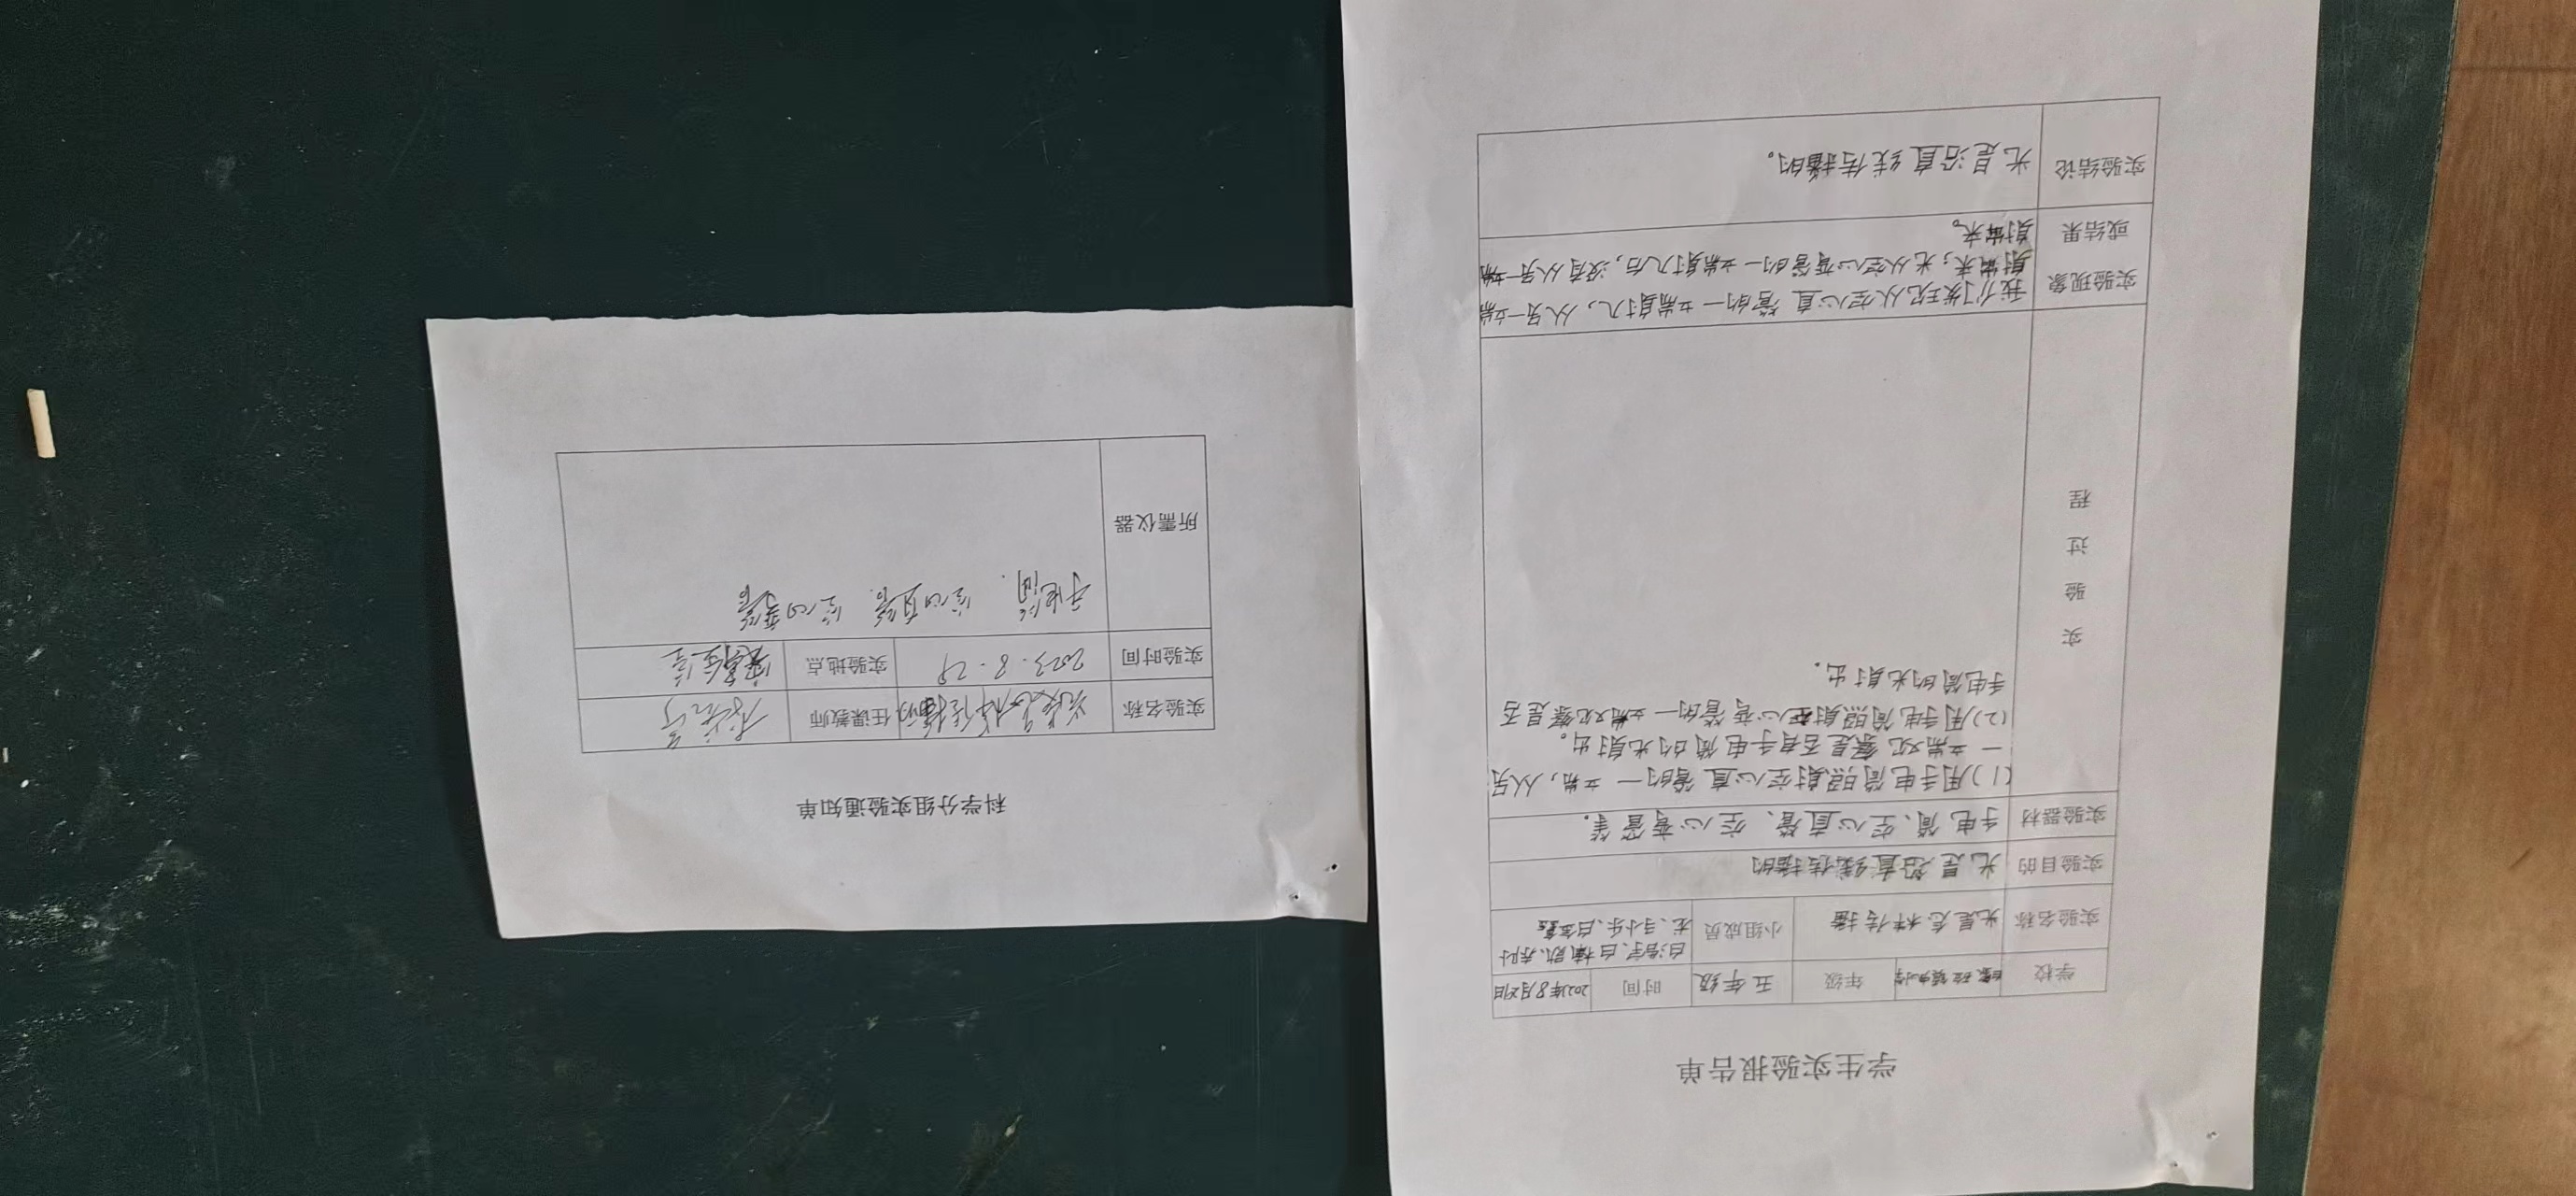 学生实验报告单
学校 年级 五年级 时间 2023年8月29日
实验名称 光是怎样传播 小组成员
实验目的 光是沿直线传播的
实验器材 手电筒、空心直管、空心弯管等.
实验过程
(1)用手电筒照射空心直管的一端,从另
一端观察是否有手电筒的光射出。
(2)用手电筒照射空心弯管的一端观察是否
手电筒的光射出.
实验现象或结果
我们发现从空心直管的一端射入,从另一端
射出来;光从空心弯管的一端射入后,没有从另一端
射出来。
实验结论 光是沿直线传播的。
科学分组实验通知单
实验名称 光是怎样传播的 任课教师
实验时间 2023.8.29 实验地点 实验室
所需仪器 手电筒. 空心直管. 空心弯管